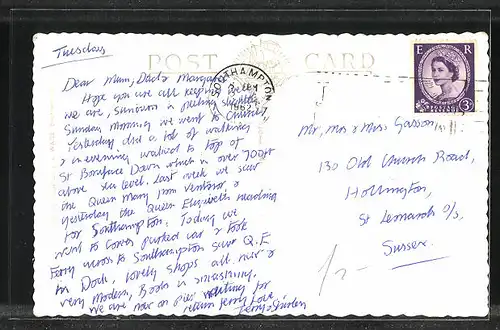 Tuesday
POST CARD
Dear Mum, Dad & Margaret
Hope you are all keeping
we are, Sunburn is peeling slightly
Sunday Morning we went to Church,
Yesterday did a lot of walking
& in evening walked to top of
St Boniface Down which is over 700ft
above sea level. Last week we saw
the Queen Mary from Ventnor &
Yesterday the Queen Elizabeth heading
for Southampton. Today we
went to Cowes parked car & took
Ferry across to Southampton saw Q.E
in Dock, lovely shops all new &
very modern,
We are now on pier waiting for
return ferry Love
Terry & Shirley
SOUTHAMPTON
E R
3D
Mr, Mrs & Miss Gasson,
130 Old Church Road,
Hollington,
St Leonards o/s,
Sussex.
1/-